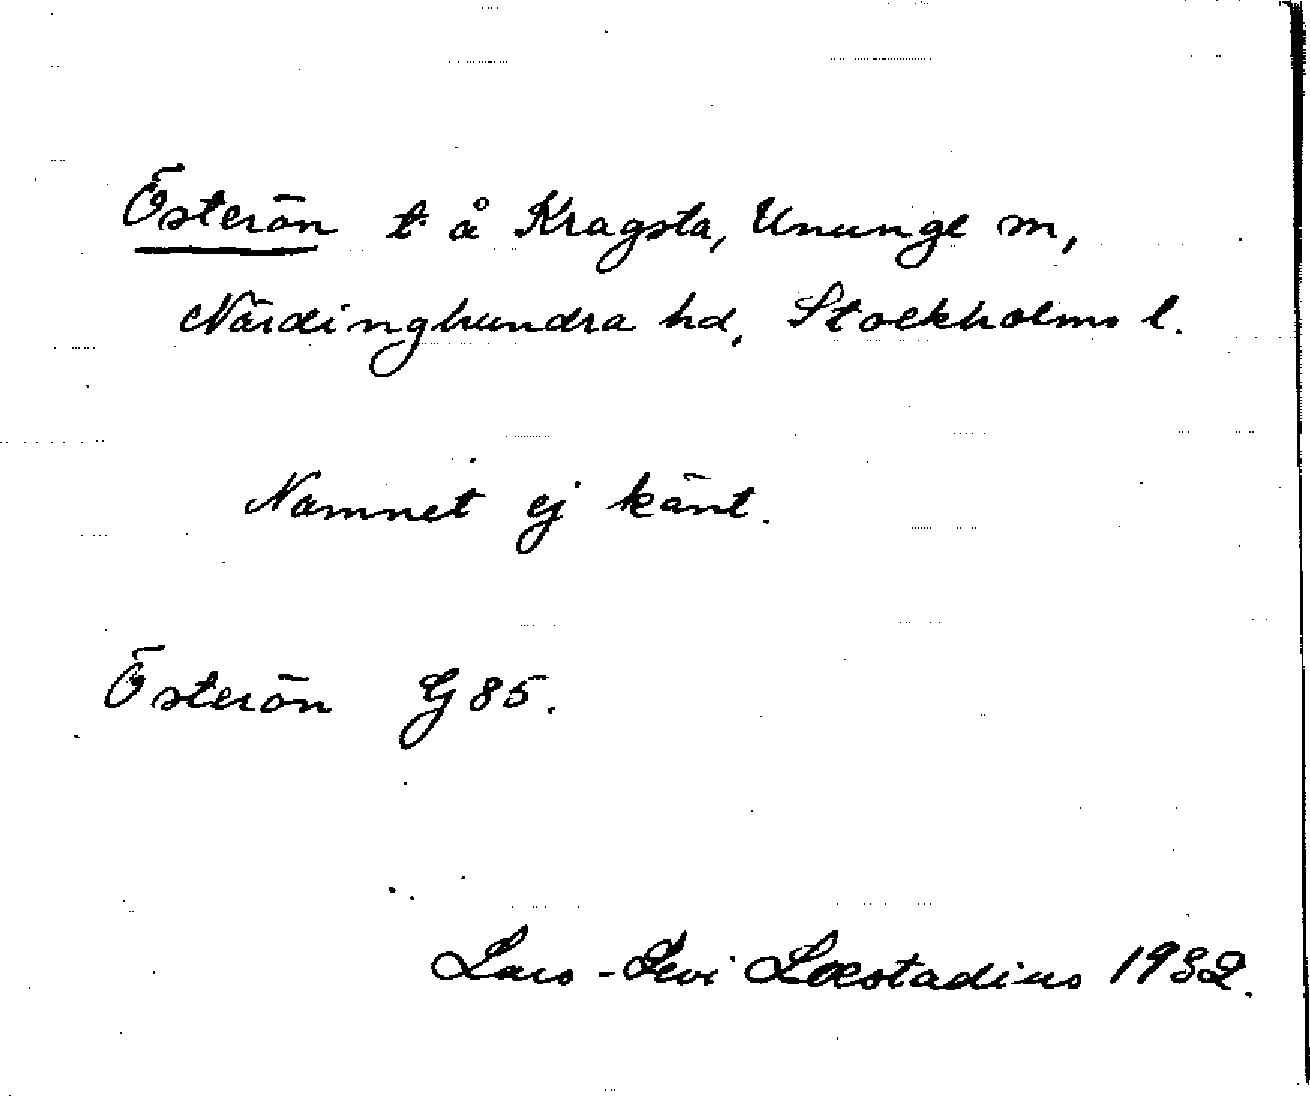 Österön t å Kragsta, Ununge sn,
Närdinghundra hd, Stockholms l.
Namnet ej känt.
Österön G 85.
Lars-Levi Læstadius 1932.